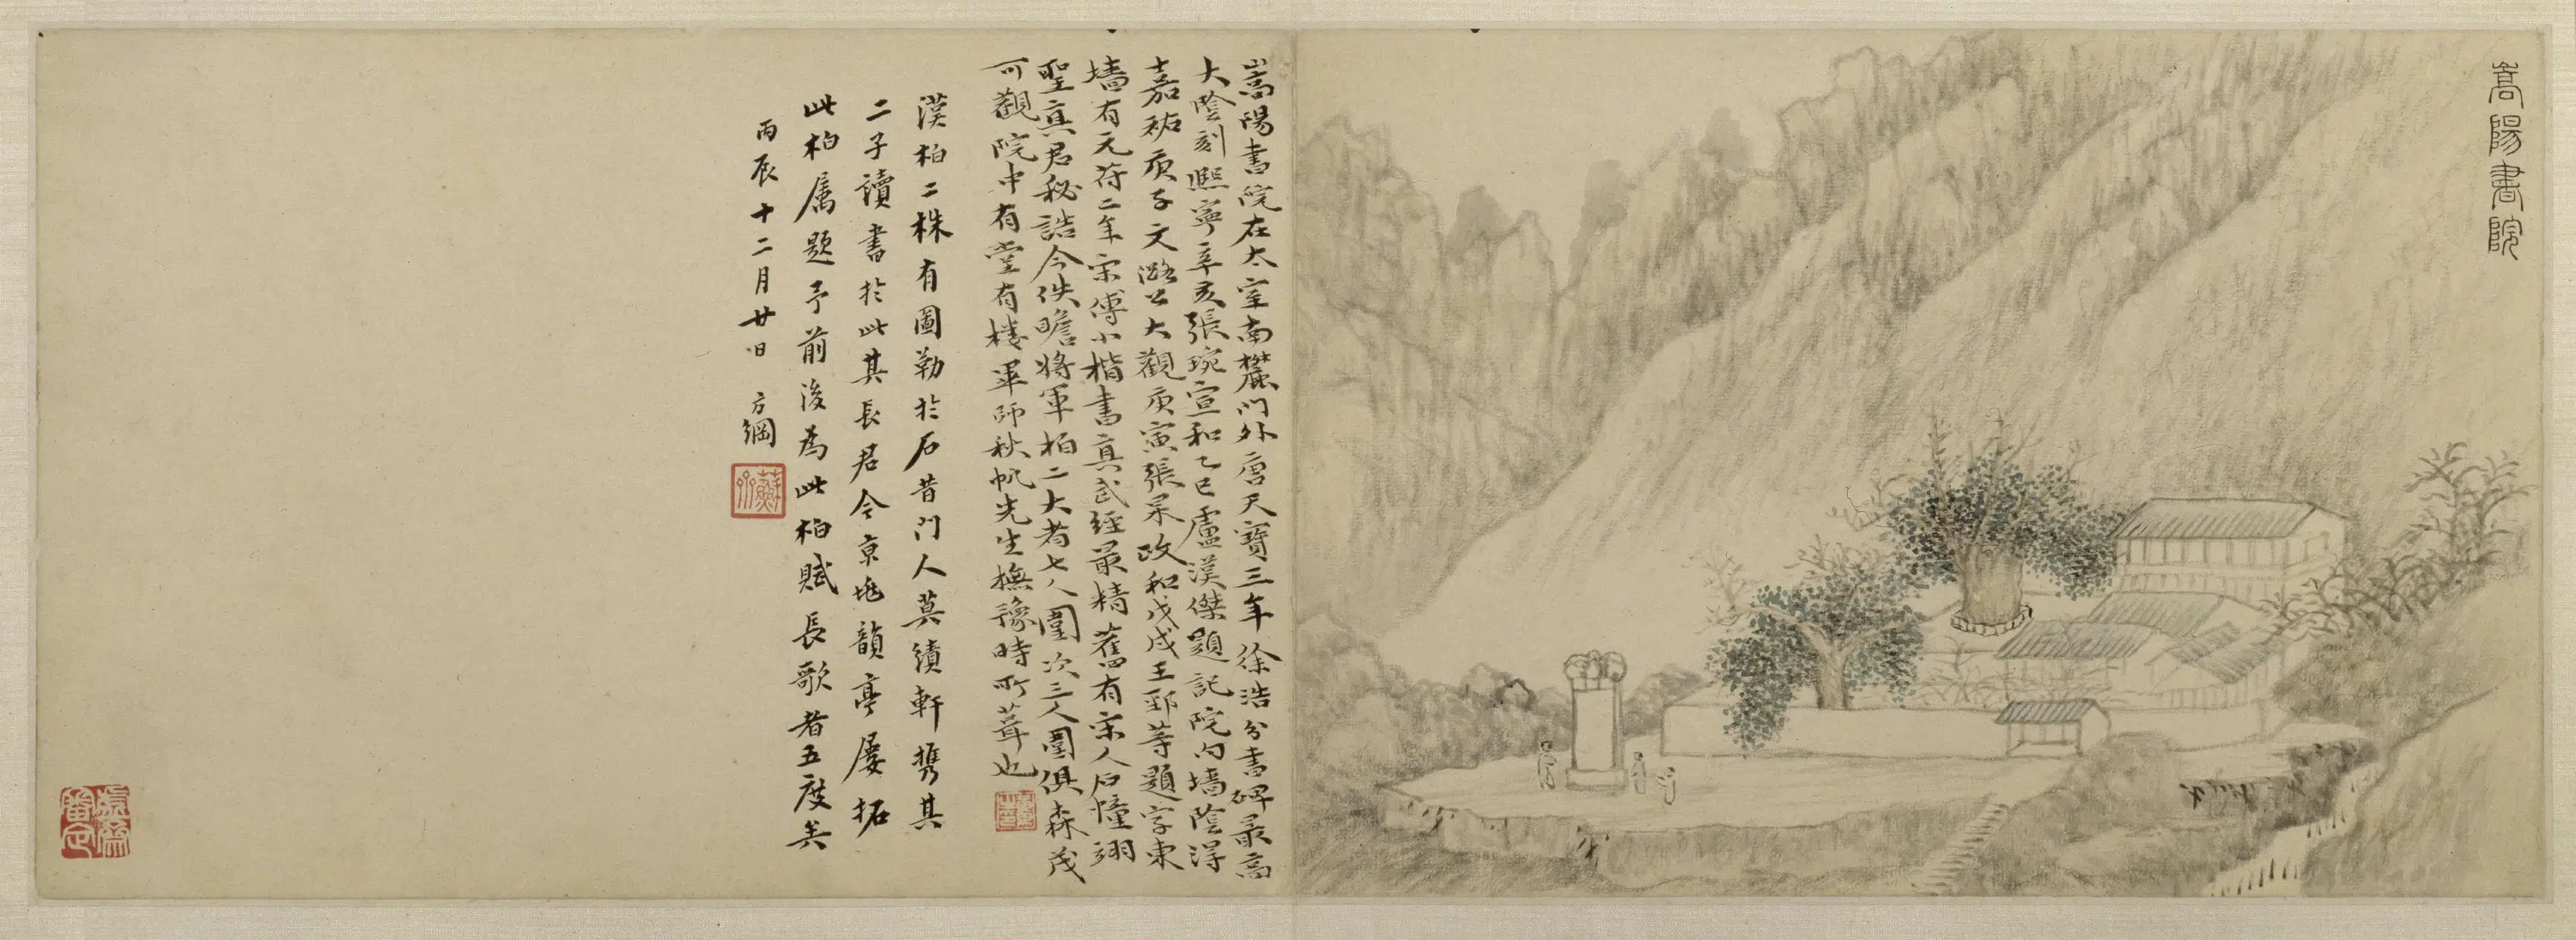 嵩陽書院
嵩陽書院在太室南麓門外唐天寶三年徐浩分書碑最高
大陰刻熙寧辛亥張琬宣和乙巳盧漢傑題記院内墻陰得
嘉祐庚子文潞公大觀庚寅張杲政和戊戌王郅等題字東
墻有元符二年宋傅小楷書真武經最精舊有宋人石幢翊
聖真君秘誥今佚瞻將軍柏二大者七人圍次三人圍俱森茂
可觀院中有堂有樓畢師秋帆先生撫豫時所葺也
漢柏二株有圖勒於石昔門人莫續軒攜其
二子讀書於此其長君今京兆韻亭屢拓
此柏属題予前後為此柏賦長歌者五度矣
丙辰十二月廿日 方綱
蘇